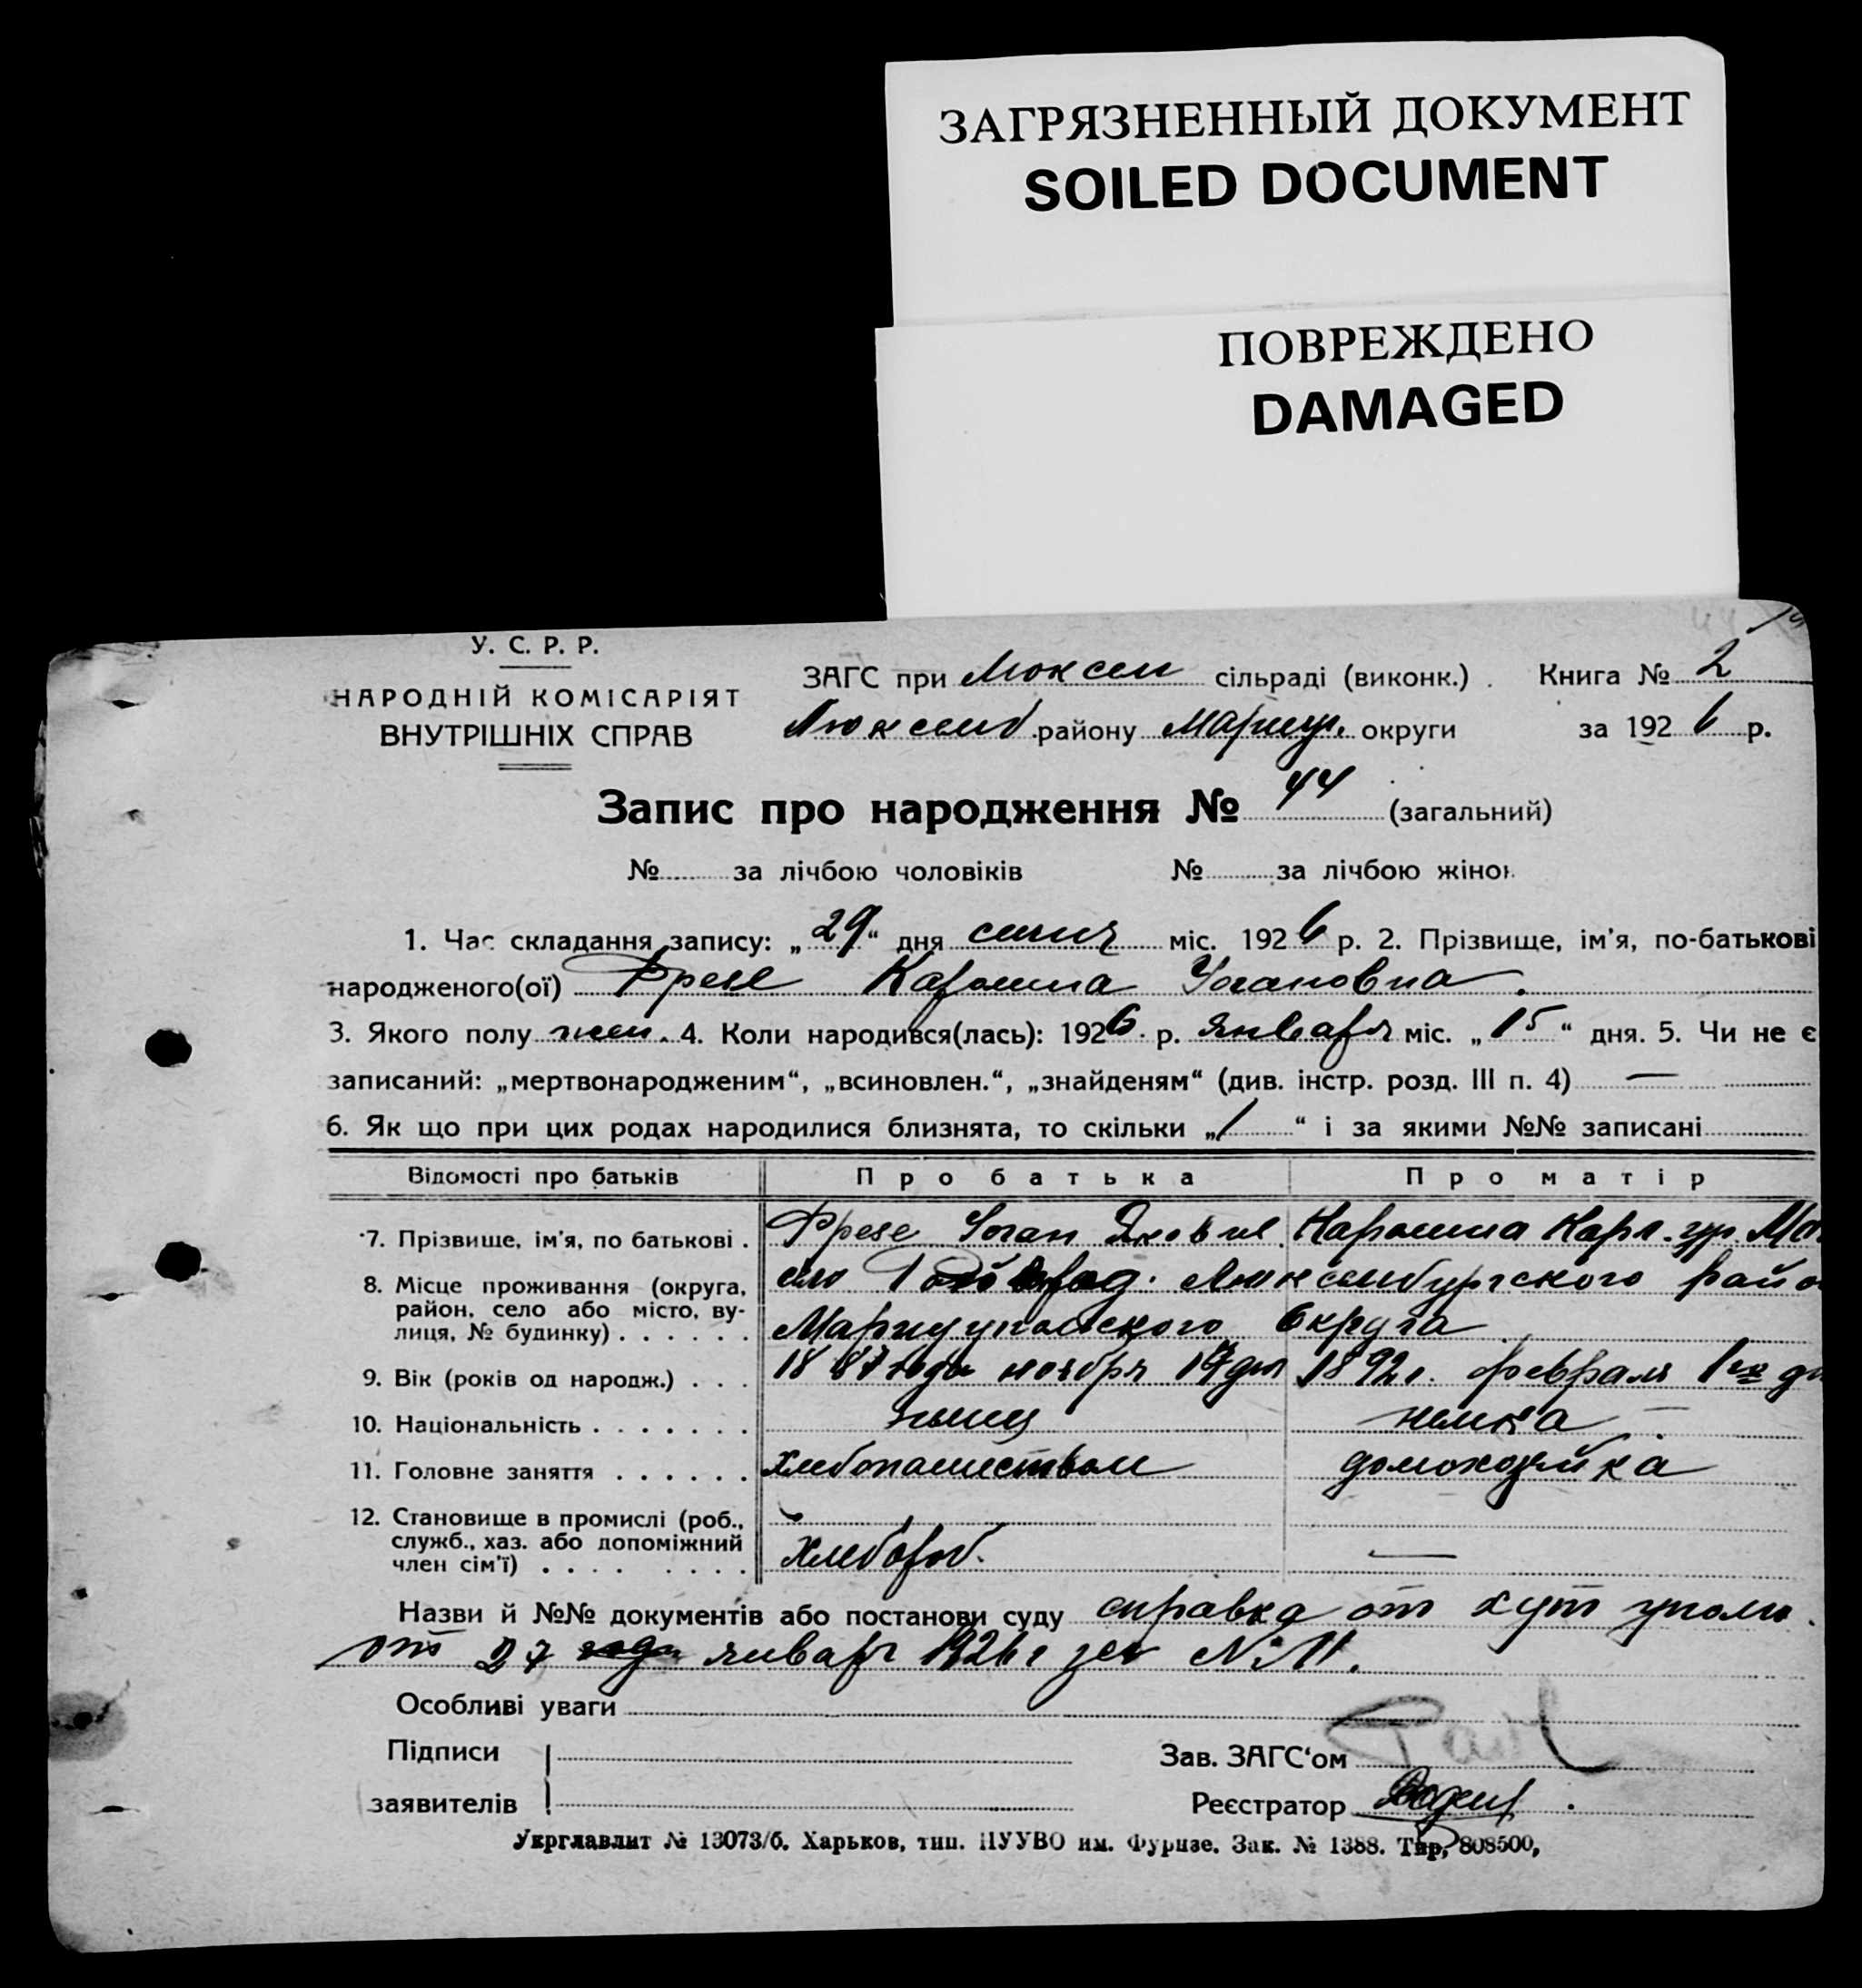 ЗАГРЯЗНЕННЫЙ ДОКУМЕНТ
SOILED DOCUMENT
ПОВРЕЖДЕНО
DAMAGED
У. С. Р. Р.
НАРОДНІЙ КОМІСАРІЯТ
ВНУТРІШНІХ СПРАВ
ЗАГС при Люксем сільраді (виконк.). Книга № 2
Люксемб району Мариуп. округи за 1926 р.
Запис про народження № 44 (загальний)
№ за лічбою чоловіків № за лічбою жінок
1. Час складання запису: „29“ дня січня міс. 1926 р. 2. Прізвище, ім'я, по-батькові
народженого(ої) Фрезе Каролина Иогановна.
3. Якого полу жен. 4. Коли народився(лась): 1926 р. января міс. „15“ дня. 5. Чи не є
записаний: „мертвонародженим“, „всиновлен.“, „знайденям“ (див. інстр. розд. III п. 4) —
6. Як що при цих родах народилися близнята, то скільки „1“ і за якими №№ записані
Відомості про батьків Про батька Про матір
7. Прізвище, ім'я, по батькові. Фрезе Иоган Яковл. Каролина Карл. ур.
8. Місце проживання (округа, район, село або місто, вулиця, № будинку) село Люксембургского
Мариупольского Округа
9. Вік (років од народж.) 1887 года ноября 1892 г. февраля 1го
10. Національність немец немка
11. Головне заняття хлебопашеством домохозяйка
12. Становище в промислі (роб., служб., хаз. або допоміжний член сім'ї) Хлебороб. —
Назви й №№ документів або постанови суду справка от хут уполн.
от 27 января 1926 г за № 11.
Особливі уваги
Підписи Зав. ЗАГС'ом
заявителів Реєстратор
Укрглавлит № 13073/б. Харьков, тип. ПУУВО им. Фрунзе. Зак. № 1388. Тир, 808500,